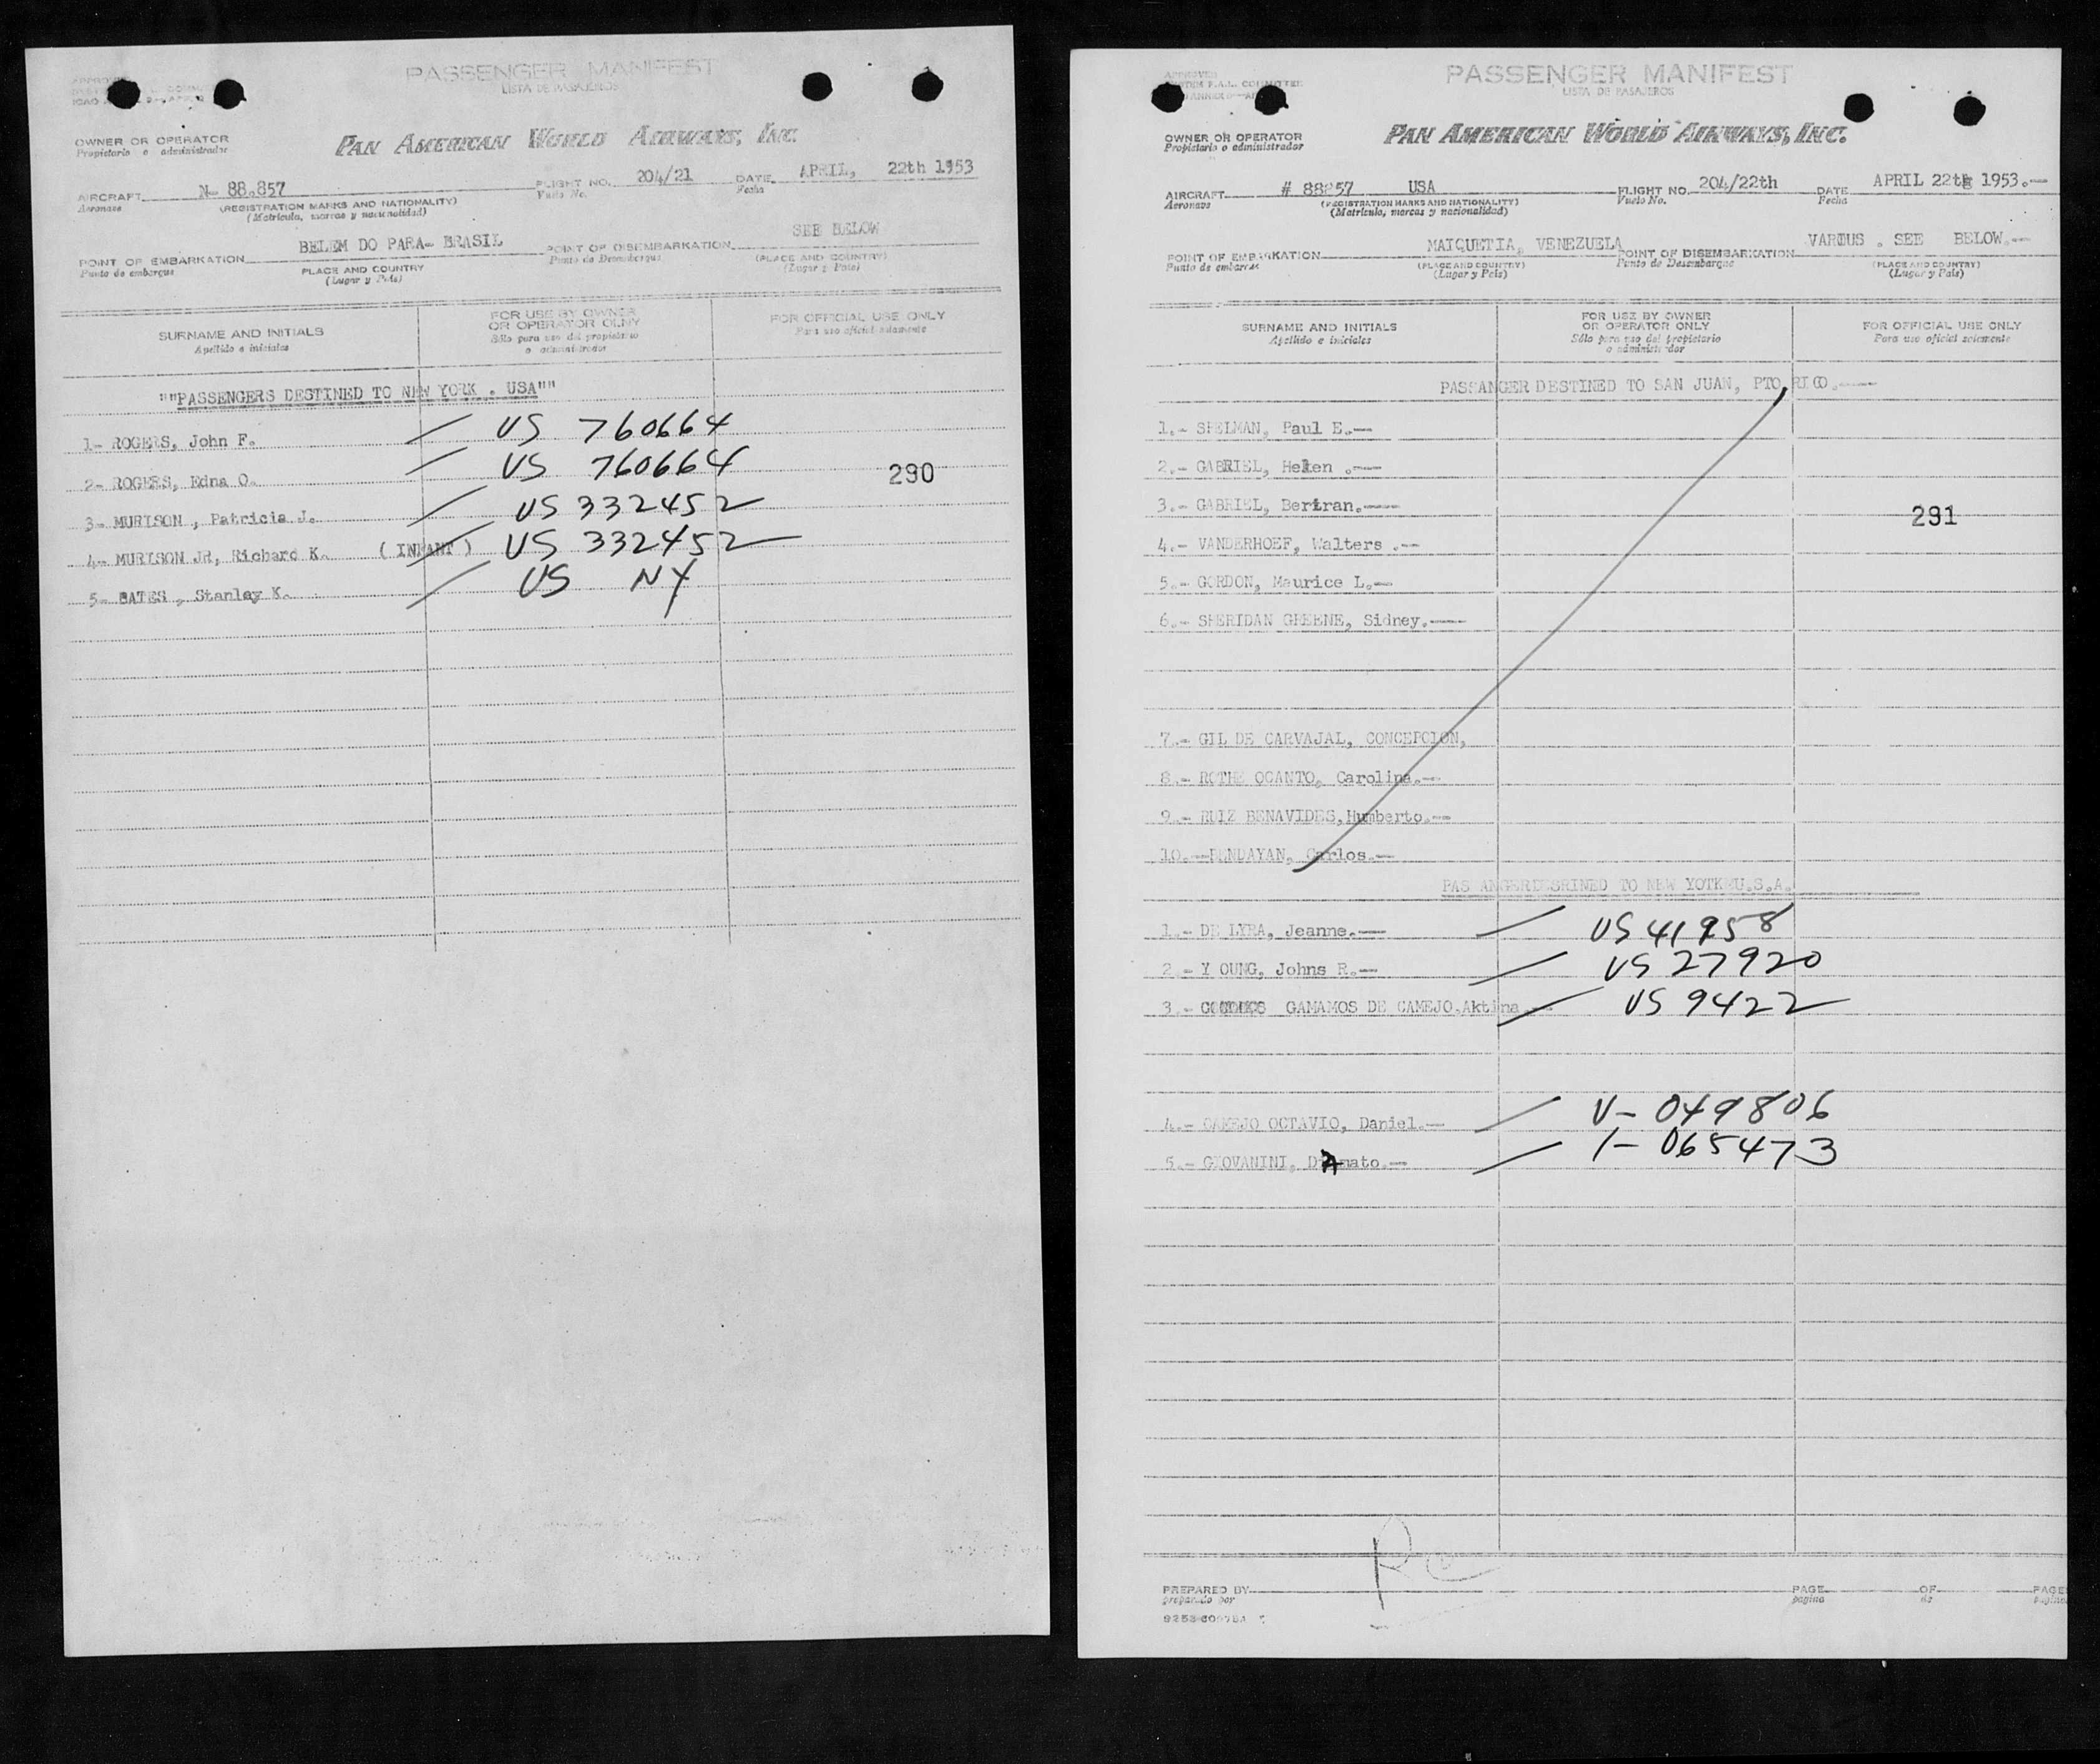 PASSENGER MANIFEST
LISTA DE PASAJEROS
OWNER OR OPERATOR
Propietario o administrador
PAN AMERICAN WORLD AIRWAYS, INC.
AIRCRAFT N- 88.857 FLIGHT NO. 204/21 DATE APRIL, 22th 1953
Aeronave (REGISTRATION MARKS AND NATIONALITY) Vuelo No. Fecha
(Matricula, marcas y nacionalidad)
POINT OF EMBARKATION BELEM DO PARA- BRASIL POINT OF DISEMBARKATION SEE BELOW
Punto de embarque PLACE AND COUNTRY Punto de Desembarque (PLACE AND COUNTRY)
(Lugar y País) (Lugar y País)
SURNAME AND INITIALS FOR USE BY OWNER OR OPERATOR OLNY FOR OFFICIAL USE ONLY
Apellido e iniciales Sólo para uso del propietario o administrador Para uso oficial solamente
""PASSENGERS DESTINED TO NEW YORK . USA""
1- ROGERS, John F. US 760664
2- ROGERS, Edna O. US 760664
290
3- MURISON , Patricia J. US 332452
4- MURISON JR, Richard K. ( INFANT ) US 332452
5- BATES , Stanley K. US NY
APPROVED
PASSENGER MANIFEST
LISTA DE PASAJEROS
OWNER OR OPERATOR
Propietario o administrador
PAN AMERICAN WORLD AIRWAYS, INC.
AIRCRAFT # 88857 USA FLIGHT NO. 204/22th DATE APRIL 22th 1953.-
Aeronave (REGISTRATION MARKS AND NATIONALITY) Vuelo No. Fecha
(Matricula, marcas y nacionalidad)
POINT OF EMBARKATION MAIQUETIA, VENEZUELA POINT OF DISEMBARKATION VARIUS . SEE BELOW.-
Punto de embarque (PLACE AND COUNTRY) Punto de Desembarque (PLACE AND COUNTRY)
(Lugar y País) (Lugar y País)
SURNAME AND INITIALS FOR USE BY OWNER OR OPERATOR ONLY FOR OFFICIAL USE ONLY
Apellido e iniciales Sólo para uso del propietario o administrador Para uso oficial solamente
PASSANGER DESTINED TO SAN JUAN, PTO, RICO.-
1.- SPELMAN, Paul E.-
2.- GABRIEL, Helen .-
3.- GABRIEL, Bertran.-
291
4.- VANDERHOEF, Walters .-
5.- GORDON, Maurice L.-
6.- SHERIDAN GREENE, Sidney.-
7.- GIL DE CARVAJAL, CONCEPCION,
8.- ROTHE OCANTO, Carolina.-
9.- RUIZ BENAVIDES, Humberto.-
10.- BENDAYAN, Carlos.-
PASSANGER DESRINED TO NEW YOTK U.S.A.
1.- DE LYRA, Jeanne.- US 41958
2.- Y OUNG, Johns R.- US 27920
3.- GAMAMOS DE CAMEJO, Aktina.- US 9422
4.- CAMEJO OCTAVIO, Daniel.- V- 049806
5.- GIOVANINI, Amato.- 1- 065473
PREPARED BY PAGE OF PAGE
preparado por pagina de